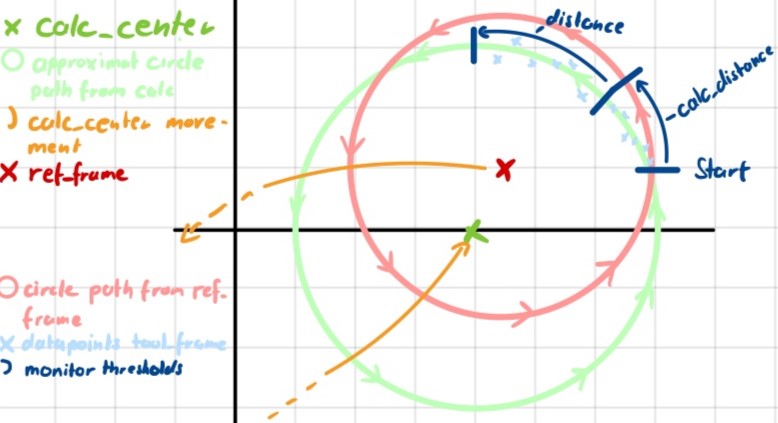 calc_center
approximat circle
path from calc
calc_center move-
ment
ref_frame
circle path from ref-
frame
datapoints tool_frame
monitor thresholds
distance
calc_distance
Start